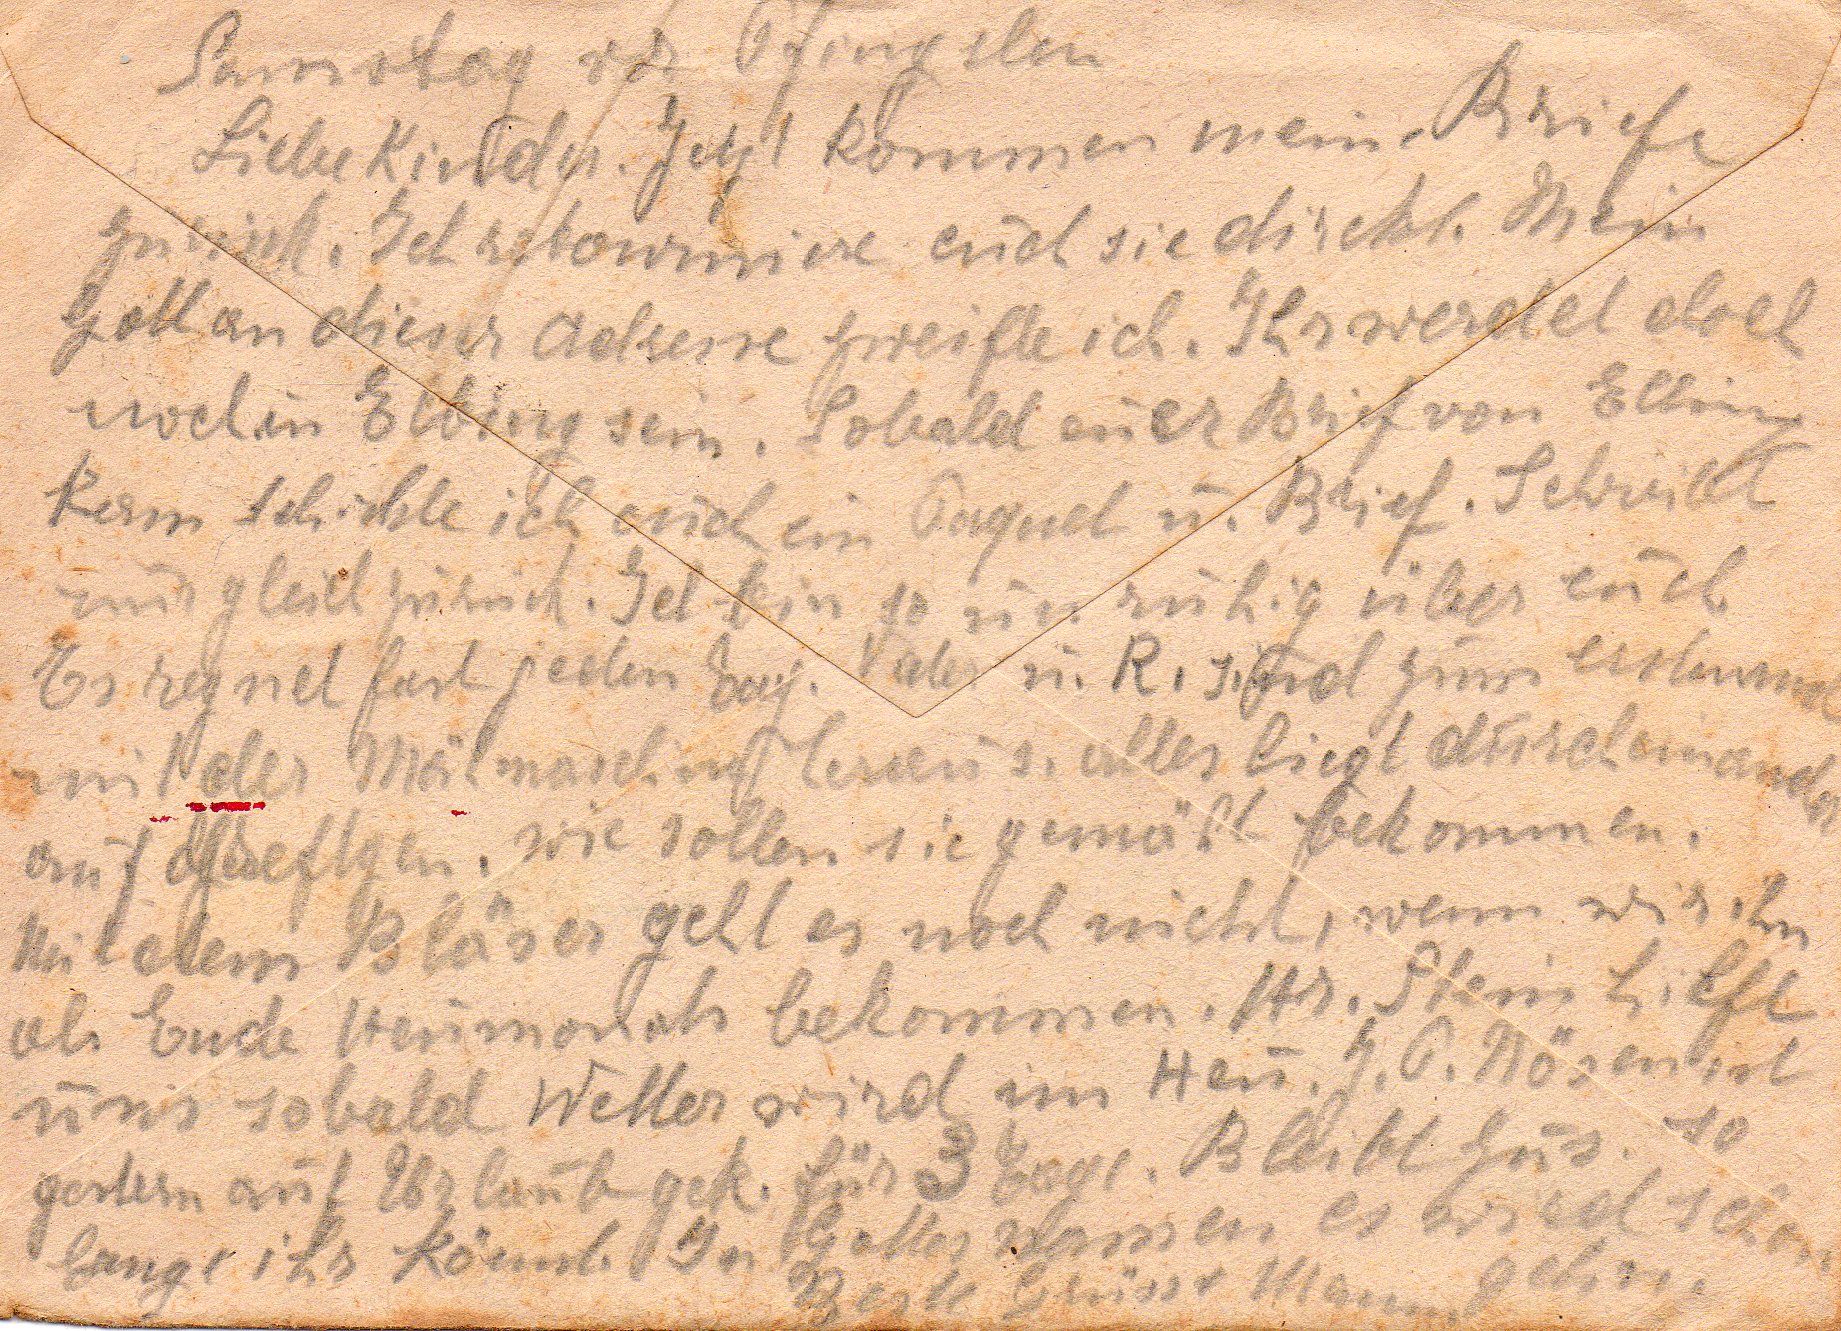 Samstag vor Pfingsten
Liebe Kinder. Jetzt kommen mein. Briefe
zurück. Ich retourniere euch sie direkt. Mein
Gott an dieser Adresse zweifle ich. Ihr werdet doch
noch in Elbing sein. Sobald euer Brief von Elbing
kem schickte ich euch ein Paquet u. Brief. Schreibt
mir gleich zurück. Ich bin so unruhig über euch.
Es regnet fast jeden Tag. Vater u. R. sind zum erstenmal
mit der Mähmaschine heraus. alles liegt durcheinander
auf wie sollen sie gemäht bekommen.
Mit dem Bläser geht es noch nicht, wenn wir ihn
ab. Ende Heumonats bekommen. Hr. Stein hilft
uns sobald Wetter wird im Heu. J. P. Nösen ist
gestern auf Urlaub gek. für 3 Tage. Bleibt zus. so
lange ihr könnt. In Gottes namen es wird schon
Beste Grüsse Mamma gehen.